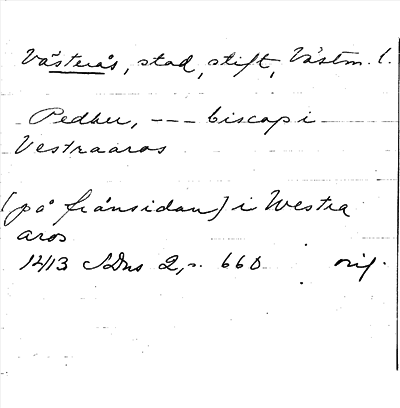 Västerås, stad, stift, Västm. l.
Pedher, --- biscop i
Vestraaros
[på frånsidan] i Westra
aros
1413 SDns 2, s. 660 orig.